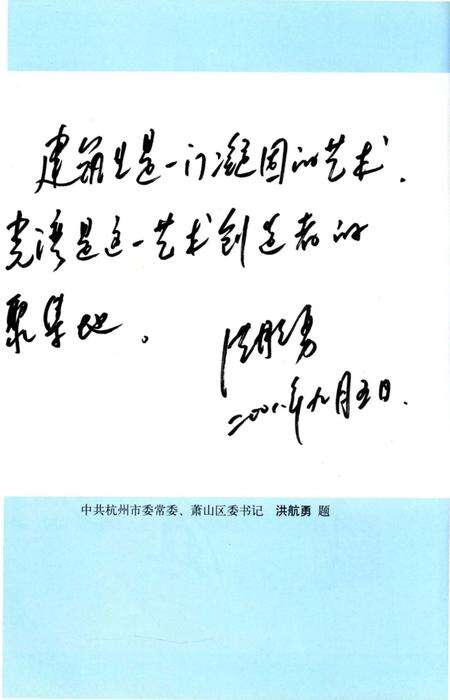 建筑业是一门凝固的艺术，
党湾是这一艺术创造者的
聚集地。
洪航勇
二〇〇八年九月五日.
中共杭州市委常委、萧山区委书记 洪航勇 题